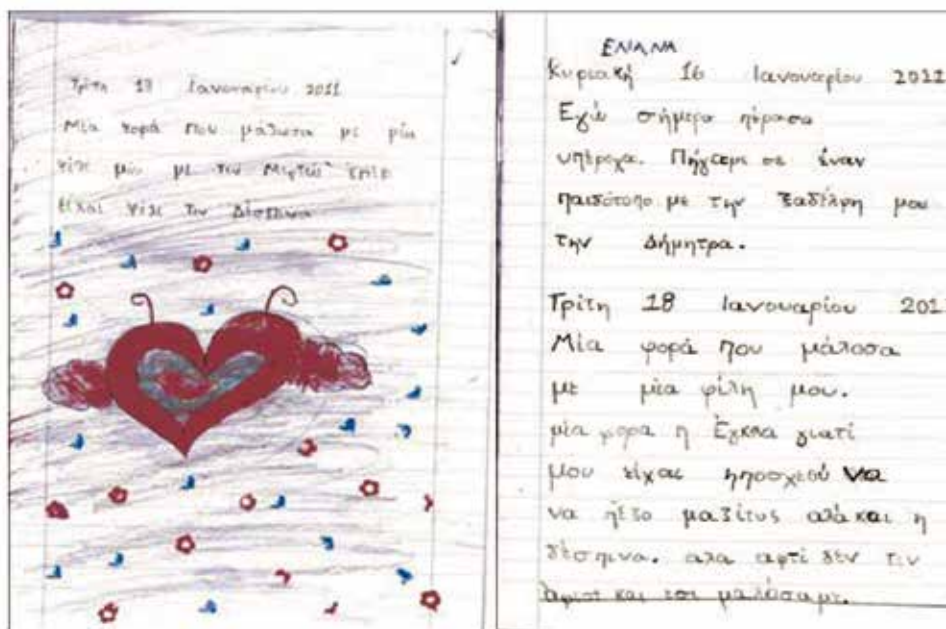 Τρίτη 18 Ιανουαρίου 2011
Μία φορά που μάλωσα με μία
φίλη μου με τον
φίλη την Δέσπηνα
ΕΛΙΑΝΑ
Κυριακή 16 Ιανουαρίου 2011
Εγώ σήμερα πέρασα
υπέροχα. Πήγαμε σε έναν
παιδότοπο με την ξαδέλφη μου
την Δήμητρα.
Τρίτη 18 Ιανουαρίου 201
Μία φορά που μάλοσα
με μία φίλη μου.
μία φορα η γιατί
μου είχαε ηποσχεσύ να
να πέξο μαζίτυς αλά και η
δέσπηνα. αλα αφτί δέν τιν
άφισε και έσι μαλόσαμε.